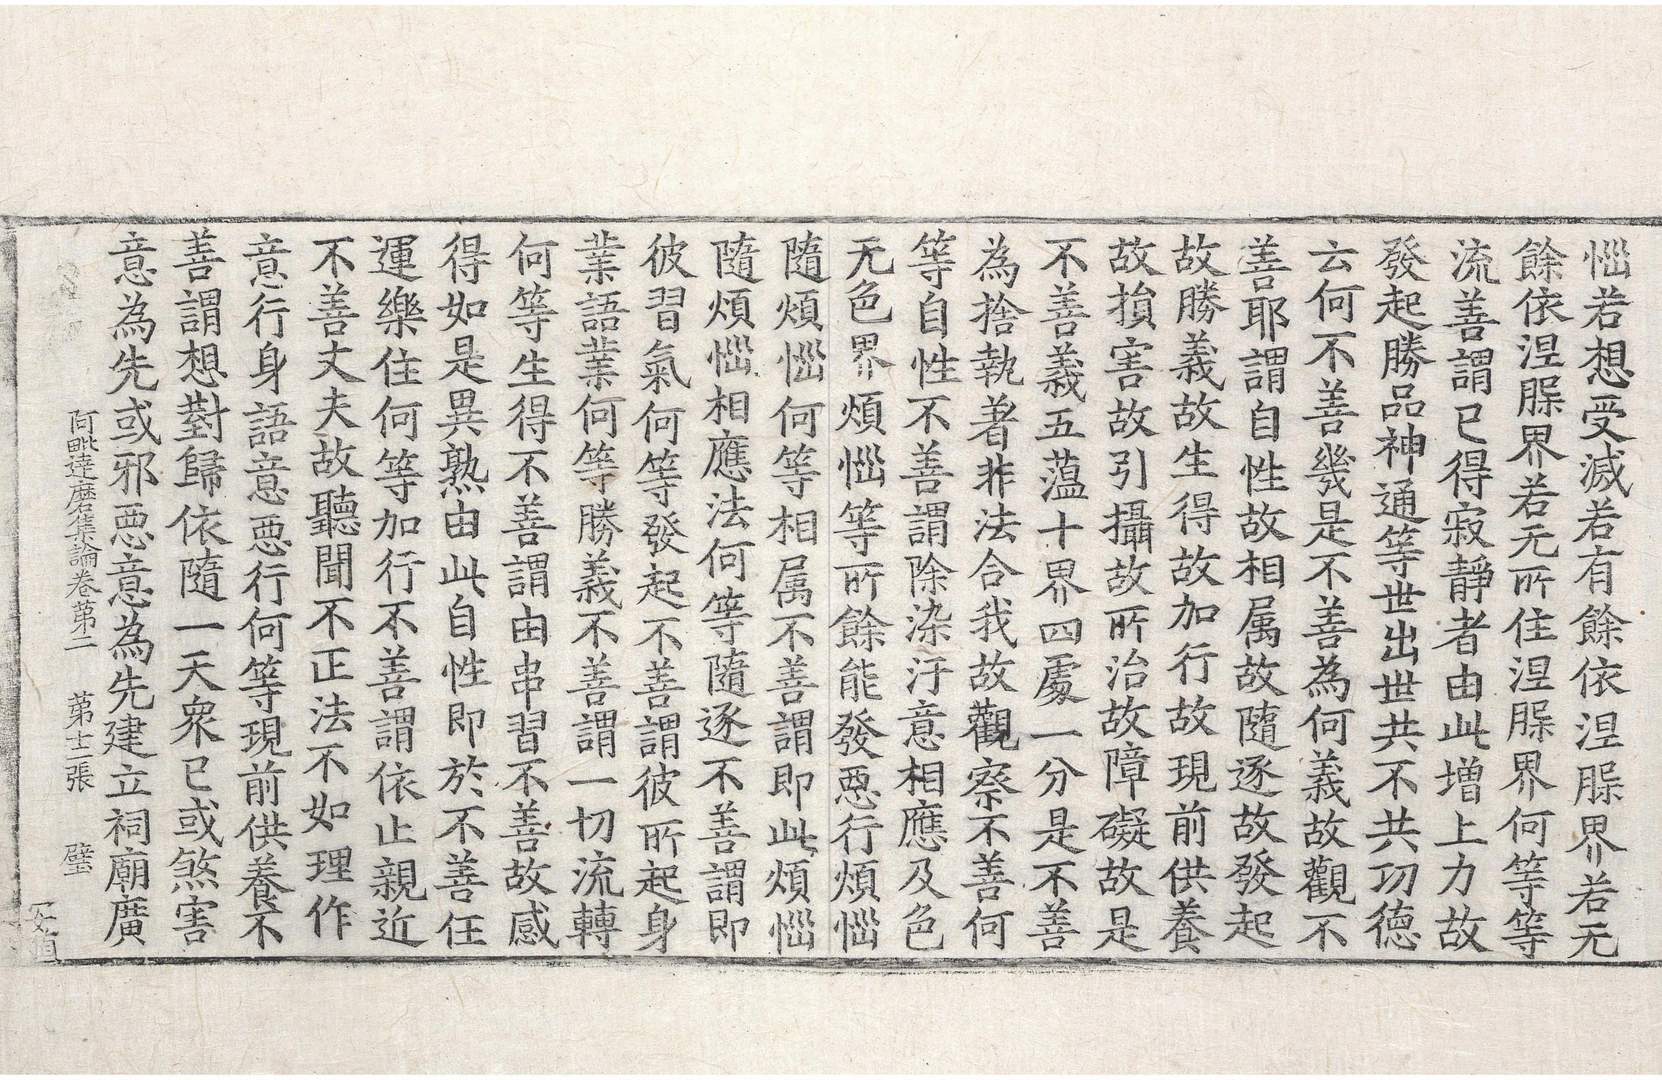 惱若想受滅若有餘依涅槃界若无
餘依涅槃界若无所住涅槃界何等等
流善謂已得寂靜者由此增上力故
發起勝品神通等世出世共不共功德
云何不善幾是不善為何義故觀不
善耶謂自性故相属故隨逐故發起
故勝義故生得故加行故現前供養
故損害故引攝故所治故障礙故是
不善義五蘊十界四處一分是不善
為捨執著非法合我故觀察不善何
等自性不善謂除染汙意相應及色
无色界煩惱等所餘能發惡行煩惱
隨煩惱何等相属不善謂即此煩惱
隨煩惱相應法何等隨逐不善謂即
彼習氣何等發起不善謂彼所起身
業語業何等勝義不善謂一切流轉
何等生得不善謂由串習不善故感
得如是異熟由此自性即於不善任
運樂住何等加行不善謂依止親近
不善丈夫故聽聞不正法不如理作
意行身語意惡行何等現前供養不
善謂想對歸依隨一天衆已或煞害
意為先或邪惡意為先建立祠廟廣
阿毗達磨集論卷第二 第十二張 璧